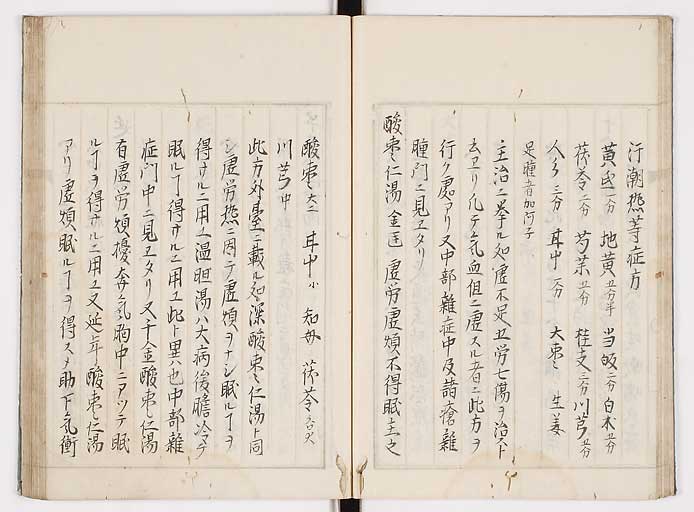 汗潮熱等症方
黄芪 一分 地黄 五分半 当皈 二分 白朮 五分
茯苓 二分 芍薬 五分 桂支 三分 川芎 五分
人参 三分 耳中 一分 大枣 生姜
足腫者加附子
主治ニ挙ル如虚不足五労七傷ヲ治スト
云ヱリ凡テ気血俱ニ虚スル者ニ此方ヲ
行ク處アリ又中部雜症中及諸瘡雜
腫門ニ見ヱタリ
酸枣仁湯 金匱 虚労虚煩不得眠主之
酸枣大 耳中小 知母 茯苓各火
川芎中
此方外臺ニ載ル如深酸枣仁湯ト同
シ虚労熱ニ因テ虚煩ヲナシ眠ルヿヲ
得サルニ用ユ温胆湯ハ大病後膽冷ヱテ
眠ルヿ得サルニ用ユ此ト異ハ也中部雜
症門中ニ見ヱタリ又千金酸枣仁湯
有虚労煩擾奔気胸中ニアツテ眠
ルヿヲ得サルニ用ユ又延年酸枣仁湯
アリ虚煩眠ルヿヲ得ス助下気衝